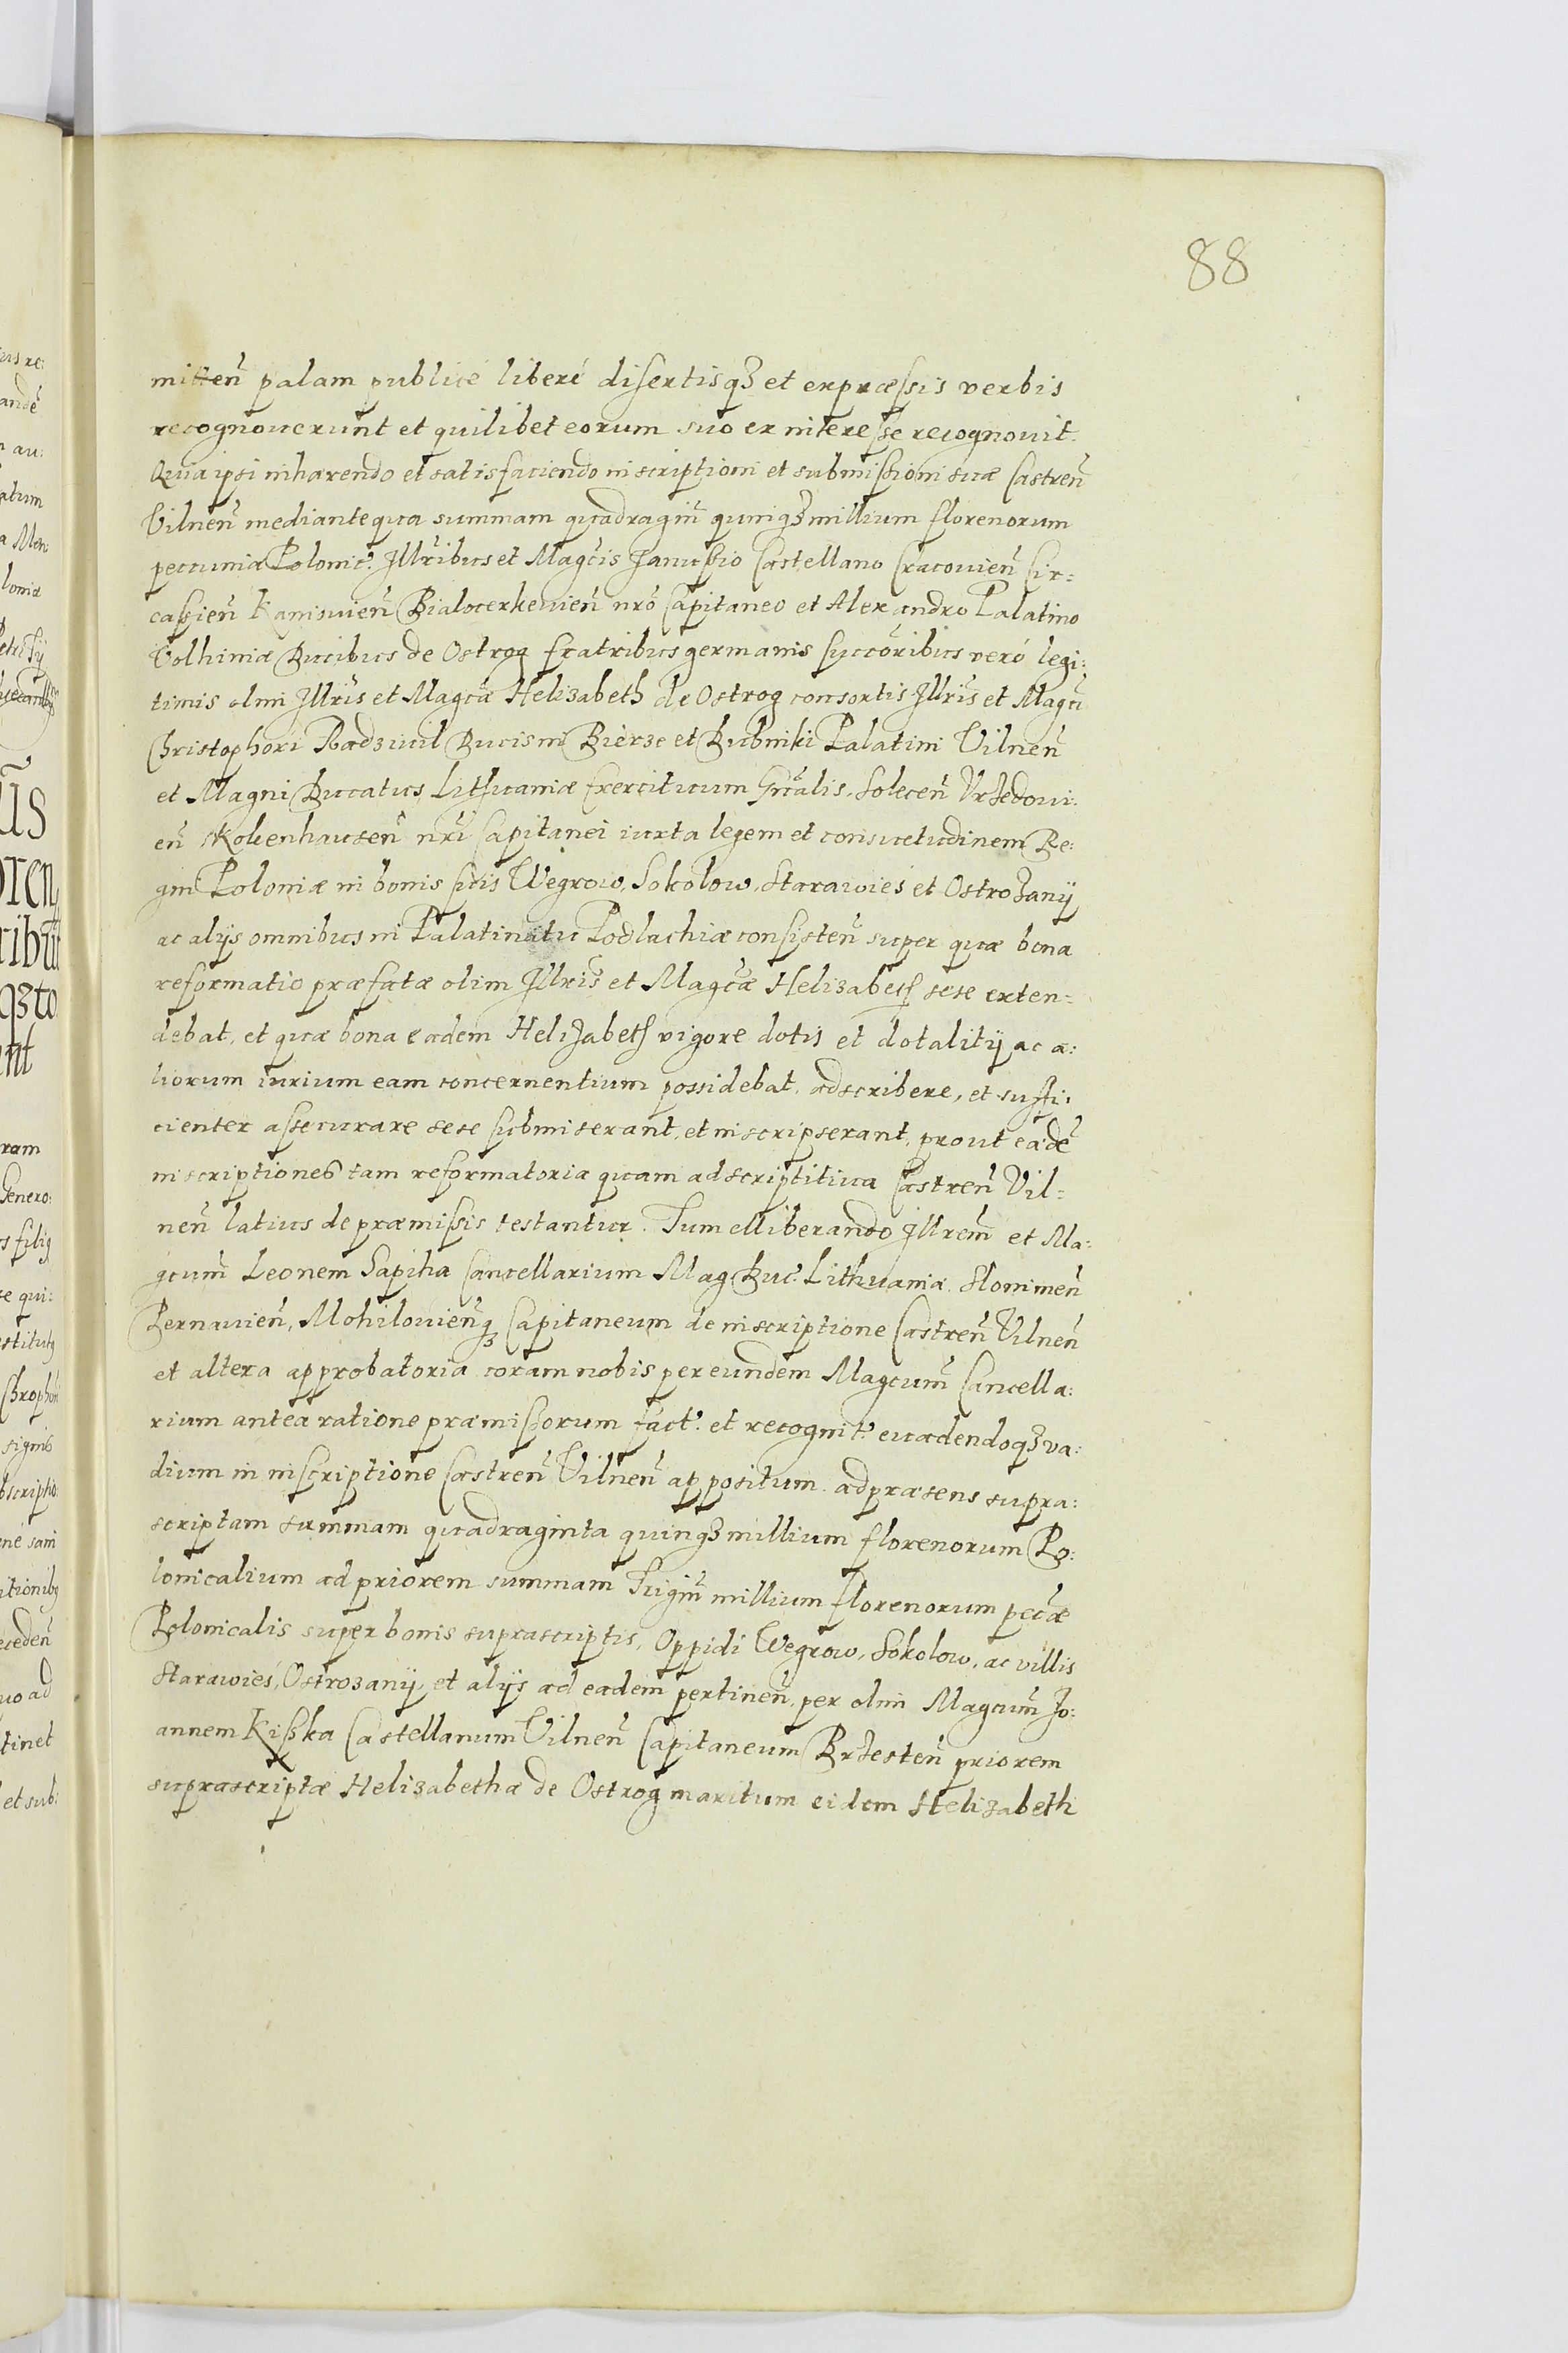 88
mitten̄ palam publicè liberè disertisqꝫ et expræssis verbis
recognouerunt et quilibet eorum suo ex interesse recognouit.
Quia ipsi inhærendo et satisfaciendo inscriptioni et submissioni suæ Castren̄
Vilnen̄ mediante qua summam quadragin̄ quinqꝫ millium florenorum
pecuniæ Polonic: Illr̄ibus et Magc̄is Janussio Castellano Cracouien̄ Cir=
cassien̄ Kaniowien̄ Bialocerkeuien̄ nr̄o Capitaneo et Alexandro Palatino
Volhiniæ Ducibus de Ostrog fratribus germanis succōribus verò legi:
timis olim Illr̄is et Magc̄æ Helizabeth de Ostrog consortis Illr̄is et Magci
Christophori Radziwil Ducis in Bierze et Dubinki Palatini Vilnen̄
et Magni Ducatus Lithuaniæ Exercituum Gn̄alis, Solecen̄ Vrzedoui:
en̄ Kokenhausen̄ nr̄i Capitanei iuxta legem et consuetudinem Re:
gni Poloniæ in bonis suis Wegrow, Sokolow, Starawies et Ostrozany
ac alijs omnibus in Palatinatu Podlachiæ consisten̄ super quæ bona
reformatio præfatæ olim Illr̄is et Magc̄æ Helizabeth sese exten=
debat, et quæ bona eadem Helizabeth vigore dotis et dotalitij ac a:
liorum iurium eam concernentium possidebat, adscribere, et suffi:
cienter assecurare sese submiserant, et inscripserant, prout eædē
inscriptiones tam reformatoriæ quam adscriptitiuæ Castren̄ Vil=
nen̄ latius de præmissis testantur. Tum elliberando Illrem̄ et Ma:
gcum̄ Leonem Sapiha Cancellarium Mag. Duc: Lithuaniæ Slonimen̄
Pernauien̄, Mohilouien̄qꝫ Capitaneum de inscriptione Castren̄ Vilnen̄
et altera approbatoria coram nobis per eundem Magcum̄ Cancella:
rium antea ratione præmissorum fact: et recognit: euadendoqꝫ va:
dium in inscriptione Castren̄ Vilnen̄ appositum ad præsens supra:
scriptam summam quadraginta quinqꝫ millium florenorum Po:
lonicalium ad priorem summam Trigin̄ millium florenorum pec̄æ
Polonicalis super bonis suprascriptis, Oppidi Wegrow, Sokolow, ac villis
Starawies, Ostrozany et alijs ad eadem pertinen̄, per olim Magcum̄ Jo:
annem Kiszka Castellanum Vilnen̄ Capitaneum Brzesten̄ priorem
suprascriptæ Helizabethæ de Ostrog maritum eidem Helizabeth